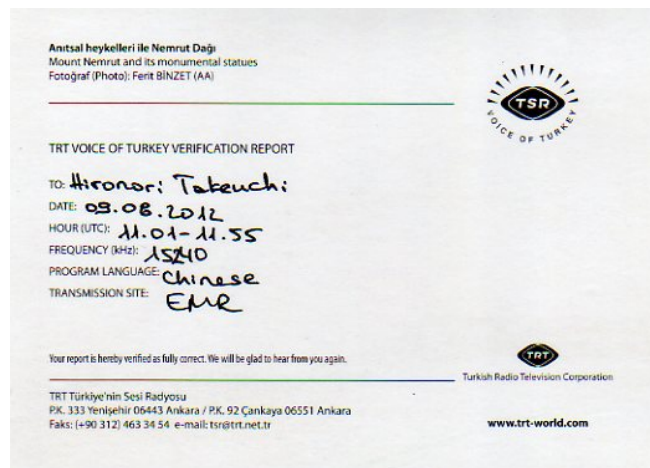 Anıtsal heykelleri ile Nemrut Dağı
Mount Nemrut and its monumental statues
Fotoğraf (Photo): Ferit BİNZET (AA)
TSR
VOICE OF TURKEY
TRT VOICE OF TURKEY VERIFICATION REPORT
TO: Hironori Takeuchi
DATE: 09.08.2012
HOUR (UTC): 11.01-11.55
FREQUENCY (kHz): 15240
PROGRAM LANGUAGE: Chinese
TRANSMISSION SITE: EMR
Your report is hereby verified as fully correct. We will be glad to hear from you again.
TRT
Turkish Radio Television Corporation
TRT Türkiye'nin Sesi Radyosu
P.K. 333 Yenişehir 06443 Ankara / P.K. 92 Çankaya 06551 Ankara
Faks: (+90 312) 463 34 54 e-mail: tsr@trt.net.tr
www.trt-world.com